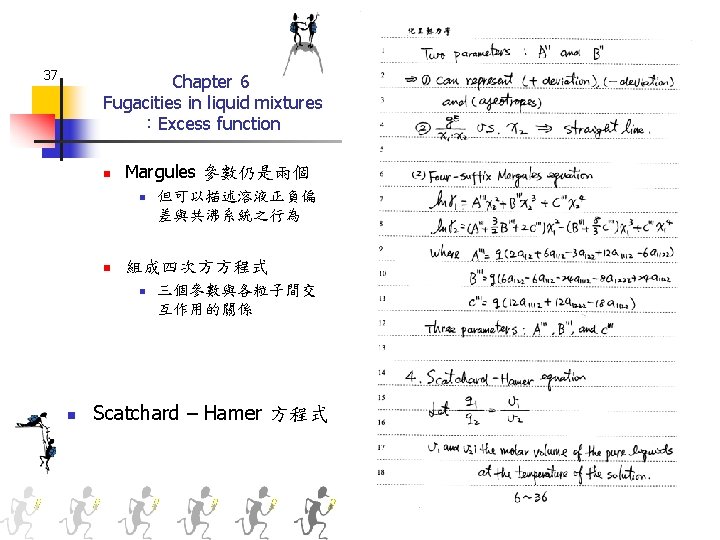 37
Chapter 6
Fugacities in liquid mixtures
：Excess function
Margules 參數仍是兩個
但可以描述溶液正負偏
差與共沸系統之行為
組成四次方方程式
三個參數與各粒子間交
互作用的關係
Scatchard – Hamer 方程式
化工熱力學
1 Two parameters : A'' and B''
2 ⇒ ① can represent (+ deviation), (− deviation)
3 and (azeotropes)
4 ② gᴱ/x₁x₂ v.s. x₂ ⇒ straight line.
5
6 (2) Four-suffix Margules equation
7 lnγ₁ = A'''x₂² + B'''x₂³ + C'''x₂⁴
8
9 where A''' = q(12a₁₂ + 6a₁₁₂ − 3a₁₂₂ + 12a₁₁₁₂ − 6a₁₁₂₂)
10
11 C''' = q(12a₁₁₂₂ + 12a₁₁₁₂ − 18a₁₁₁₂)
12 Three parameters : A''', B''', and C'''
13
14 4. Scatchard - Hamer equation
15 Let q₁/q₂ = v₁/v₂
16
17 v₁ and v₂ : the molar volume of the pure liquids
18 at the temperature of the solution.
6~36